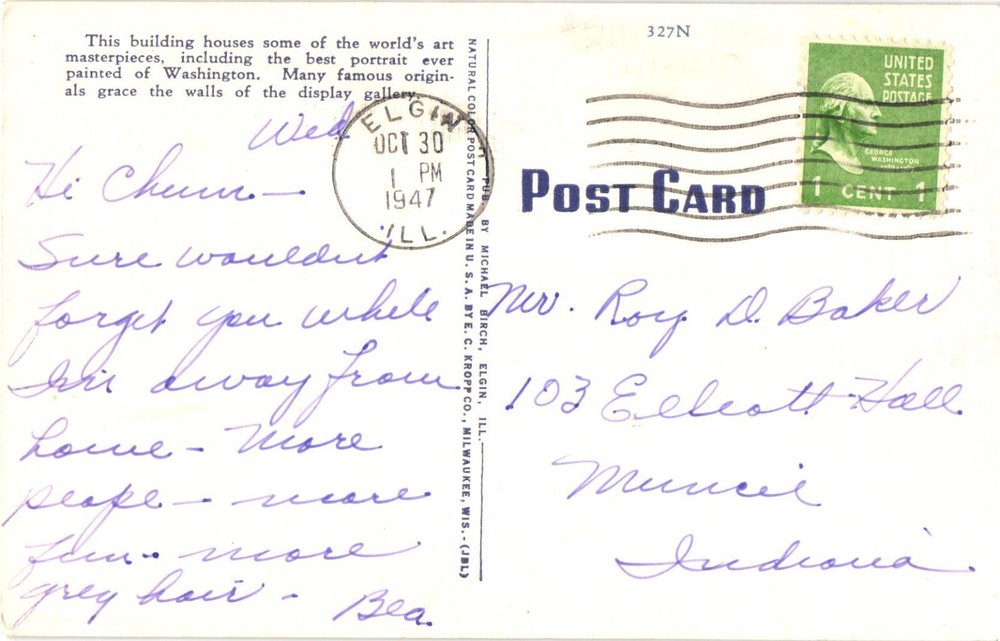 This building houses some of the world's art
masterpieces, including the best portrait ever
painted of Washington. Many famous origin-
als grace the walls of the display gallery.
Wed
Hi Chum —
Sure wouldnt
forget you while
Im away from
home — more
people — more
fun - more
grey hair - Bea.
NATURAL COLOR POST CARD MADE IN U. S. A. BY E. C. KROPP CO., MILWAUKEE, WIS. - (JBL)
PUB. BY MICHAEL BIRCH, ELGIN, ILL.
ELGIN
OCT 30
1 PM
1947
ILL.
327N
UNITED
STATES
POSTAGE
GEORGE
WASHINGTON
1 CENT 1
POST CARD
Mr. Roy D. Baker
103 Elliott Hall
Muncie
Indiana